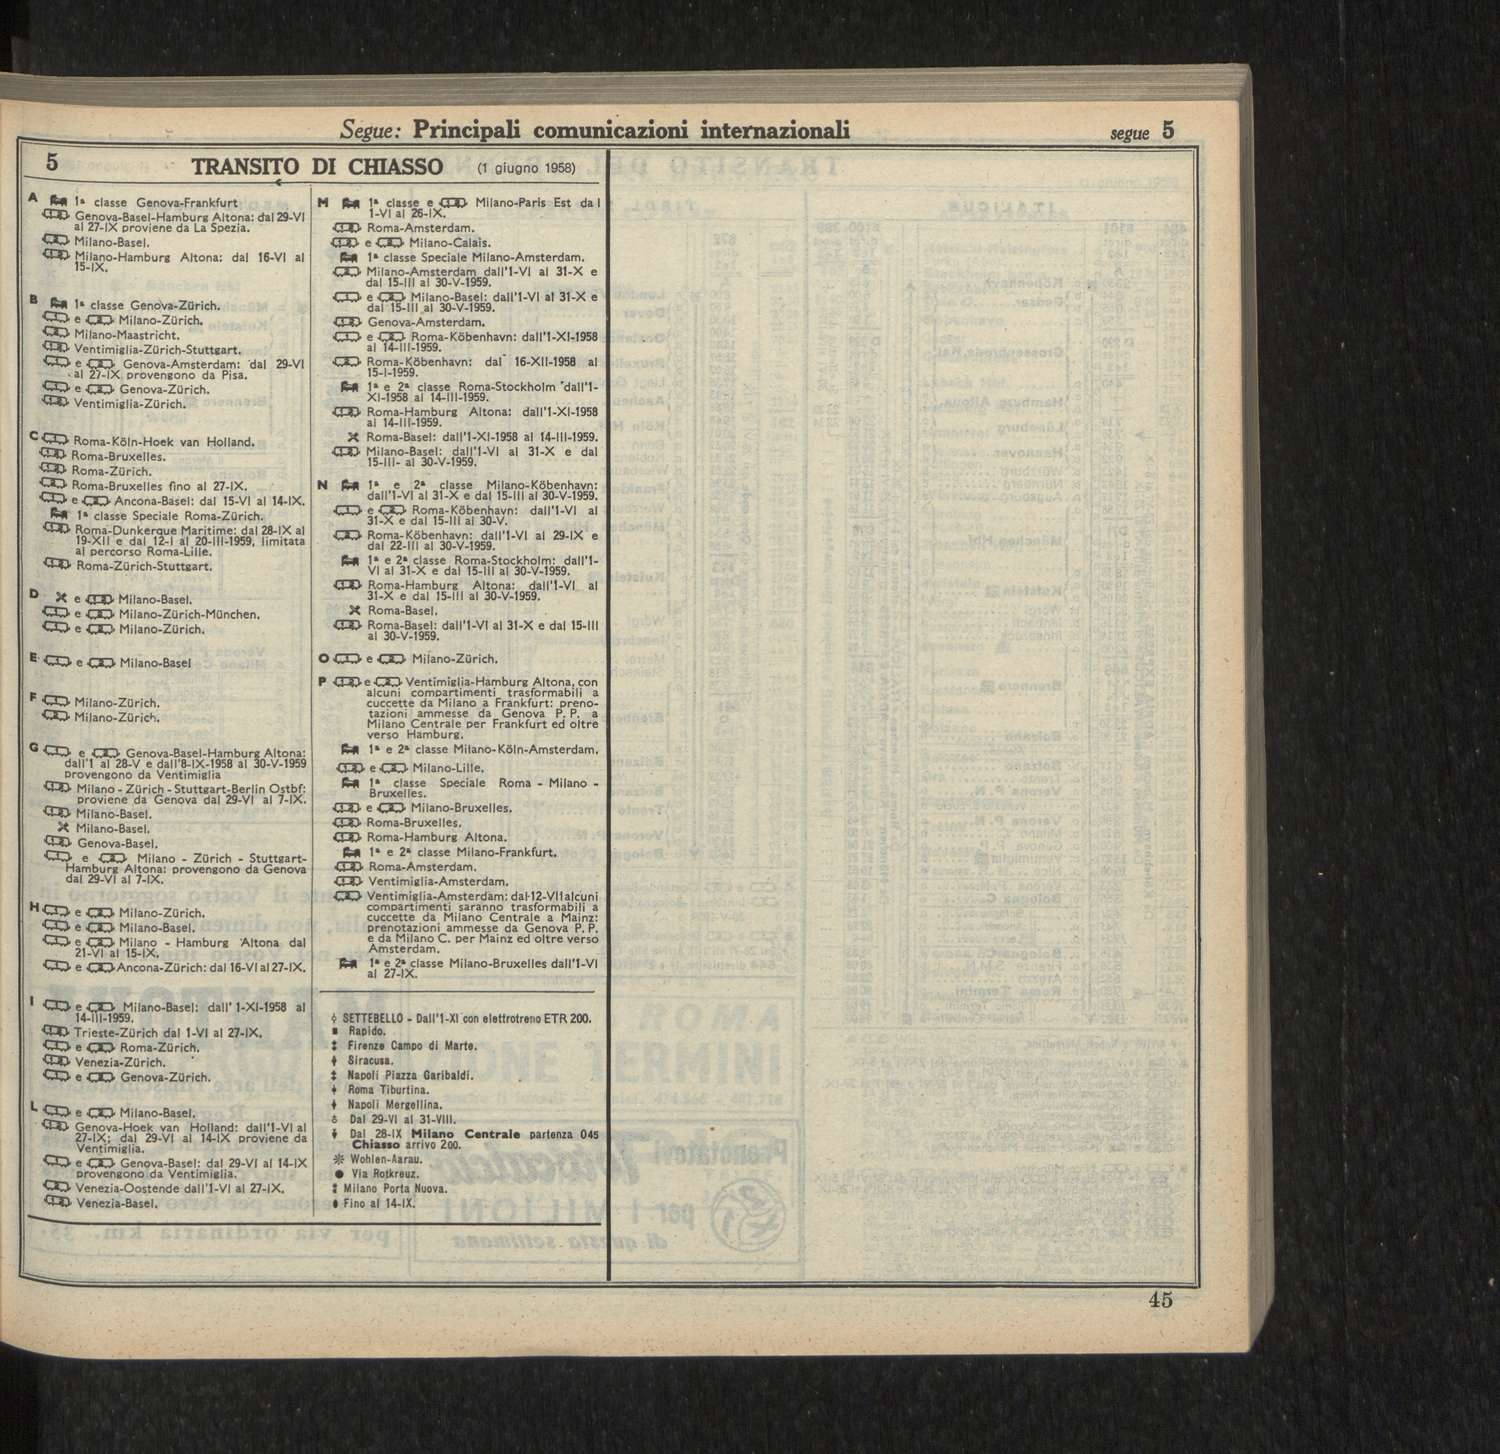 Segue: Principali comunicazioni internazionali
segue 5
5 TRANSITO DI CHIASSO (1 giugno 1958)
A 1ª classe Genova-Frankfurt
Genova-Basel-Hamburg Altona: dal 29-VI
al 27-IX proviene da La Spezia.
Milano-Basel.
Milano-Hamburg Altona: dal 16-VI al
15-IX.
B 1ª classe Genova-Zürich.
e Milano-Zürich.
Milano-Maastricht.
Ventimiglia-Zürich-Stuttgart.
e Genova-Amsterdam: dal 29-VI
al 27-IX provengono da Pisa.
e Genova-Zürich.
Ventimiglia-Zürich.
C Roma-Köln-Hoek van Holland.
Roma-Bruxelles.
Roma-Zürich.
Roma-Bruxelles fino al 27-IX.
e Ancona-Basel: dal 15-VI al 14-IX.
1ª classe Speciale Roma-Zürich.
Roma-Dunkerque Maritime: dal 28-IX al
19-XII e dal 12-I al 20-III-1959, limitata
al percorso Roma-Lille.
Roma-Zürich-Stuttgart.
D e Milano-Basel.
e Milano-Zürich-München.
e Milano-Zürich.
E e Milano-Basel
F Milano-Zürich.
Milano-Zürich.
G e Genova-Basel-Hamburg Altona:
dall'1 al 28-V e dall'8-IX-1958 al 30-V-1959
provengono da Ventimiglia
Milano - Zürich - Stuttgart-Berlin Ostbf:
proviene da Genova dal 29-VI al 7-IX.
Milano-Basel.
Milano-Basel.
Genova-Basel.
e Milano - Zürich - Stuttgart-
Hamburg Altona: provengono da Genova
dal 29-VI al 7-IX.
H e Milano-Zürich.
e Milano-Basel.
e Milano - Hamburg Altona dal
21-VI al 15-IX.
e Ancona-Zürich: dal 16-VI al 27-IX.
I e Milano-Basel: dall' 1-XI-1958 al
14-III-1959.
Trieste-Zürich dal 1-VI al 27-IX.
e Roma-Zürich.
Venezia-Zürich.
e Genova-Zürich.
L e Milano-Basel.
Genova-Hoek van Holland: dall'1-VI al
27-IX; dal 29-VI al 14-IX proviene da
Ventimiglia.
e Genova-Basel: dal 29-VI al 14-IX
provengono da Ventimiglia.
Venezia-Oostende dall'1-VI al 27-IX.
Venezia-Basel.
M 1ª classe e Milano-Paris Est dal
1-VI al 26-IX.
Roma-Amsterdam.
e Milano-Calais.
1ª classe Speciale Milano-Amsterdam.
Milano-Amsterdam dall'1-VI al 31-X e
dal 15-III al 30-V-1959.
e Milano-Basel: dall'1-VI al 31-X e
dal 15-III al 30-V-1959.
Genova-Amsterdam.
e Roma-Köbenhavn: dall'1-XI-1958
al 14-III-1959.
Roma-Köbenhavn: dal 16-XII-1958 al
15-I-1959.
1ª e 2ª classe Roma-Stockholm dall'1-
XI-1958 al 14-III-1959.
Roma-Hamburg Altona: dall'1-XI-1958
al 14-III-1959.
Roma-Basel: dall'1-XI-1958 al 14-III-1959.
Milano-Basel: dall'1-VI al 31-X e dal
15-III- al 30-V-1959.
N 1ª e 2ª classe Milano-Köbenhavn:
dall'1-VI al 31-X e dal 15-III al 30-V-1959.
e Roma-Köbenhavn: dall'1-VI al
31-X e dal 15-III al 30-V.
Roma-Köbenhavn: dall'1-VI al 29-IX e
dal 22-III al 30-V-1959.
1ª e 2ª classe Roma-Stockholm: dall'1-
VI al 31-X e dal 15-III al 30-V-1959.
Roma-Hamburg Altona: dall'1-VI al
31-X e dal 15-III al 30-V-1959.
Roma-Basel.
Roma-Basel: dall'1-VI al 31-X e dal 15-III
al 30-V-1959.
O e Milano-Zürich.
P e Ventimiglia-Hamburg Altona, con
alcuni compartimenti trasformabili a
cuccette da Milano a Frankfurt: preno-
tazioni ammesse da Genova P. P. a
Milano Centrale per Frankfurt ed oltre
verso Hamburg.
1ª e 2ª classe Milano-Köln-Amsterdam.
e Milano-Lille.
1ª classe Speciale Roma - Milano -
Bruxelles.
e Milano-Bruxelles.
Roma-Bruxelles.
Roma-Hamburg Altona.
1ª e 2ª classe Milano-Frankfurt.
Roma-Amsterdam.
Ventimiglia-Amsterdam.
Ventimiglia-Amsterdam: dal 12-VII alcuni
compartimenti saranno trasformabili a
cuccette da Milano Centrale a Mainz:
prenotazioni ammesse da Genova P. P.
e da Milano C. per Mainz ed oltre verso
Amsterdam.
1ª e 2ª classe Milano-Bruxelles dall'1-VI
al 27-IX.
SETTEBELLO - Dall'1-XI con elettrotreno ETR 200.
Rapido.
Firenze Campo di Marte.
Siracusa.
Napoli Piazza Garibaldi.
Roma Tiburtina.
Napoli Mergellina.
Dal 29-VI al 31-VIII.
Dal 28-IX Milano Centrale partenza 045
Chiasso arrivo 200.
Wohlen-Aarau.
Via Rotkreuz.
Milano Porta Nuova.
Fino al 14-IX.
45